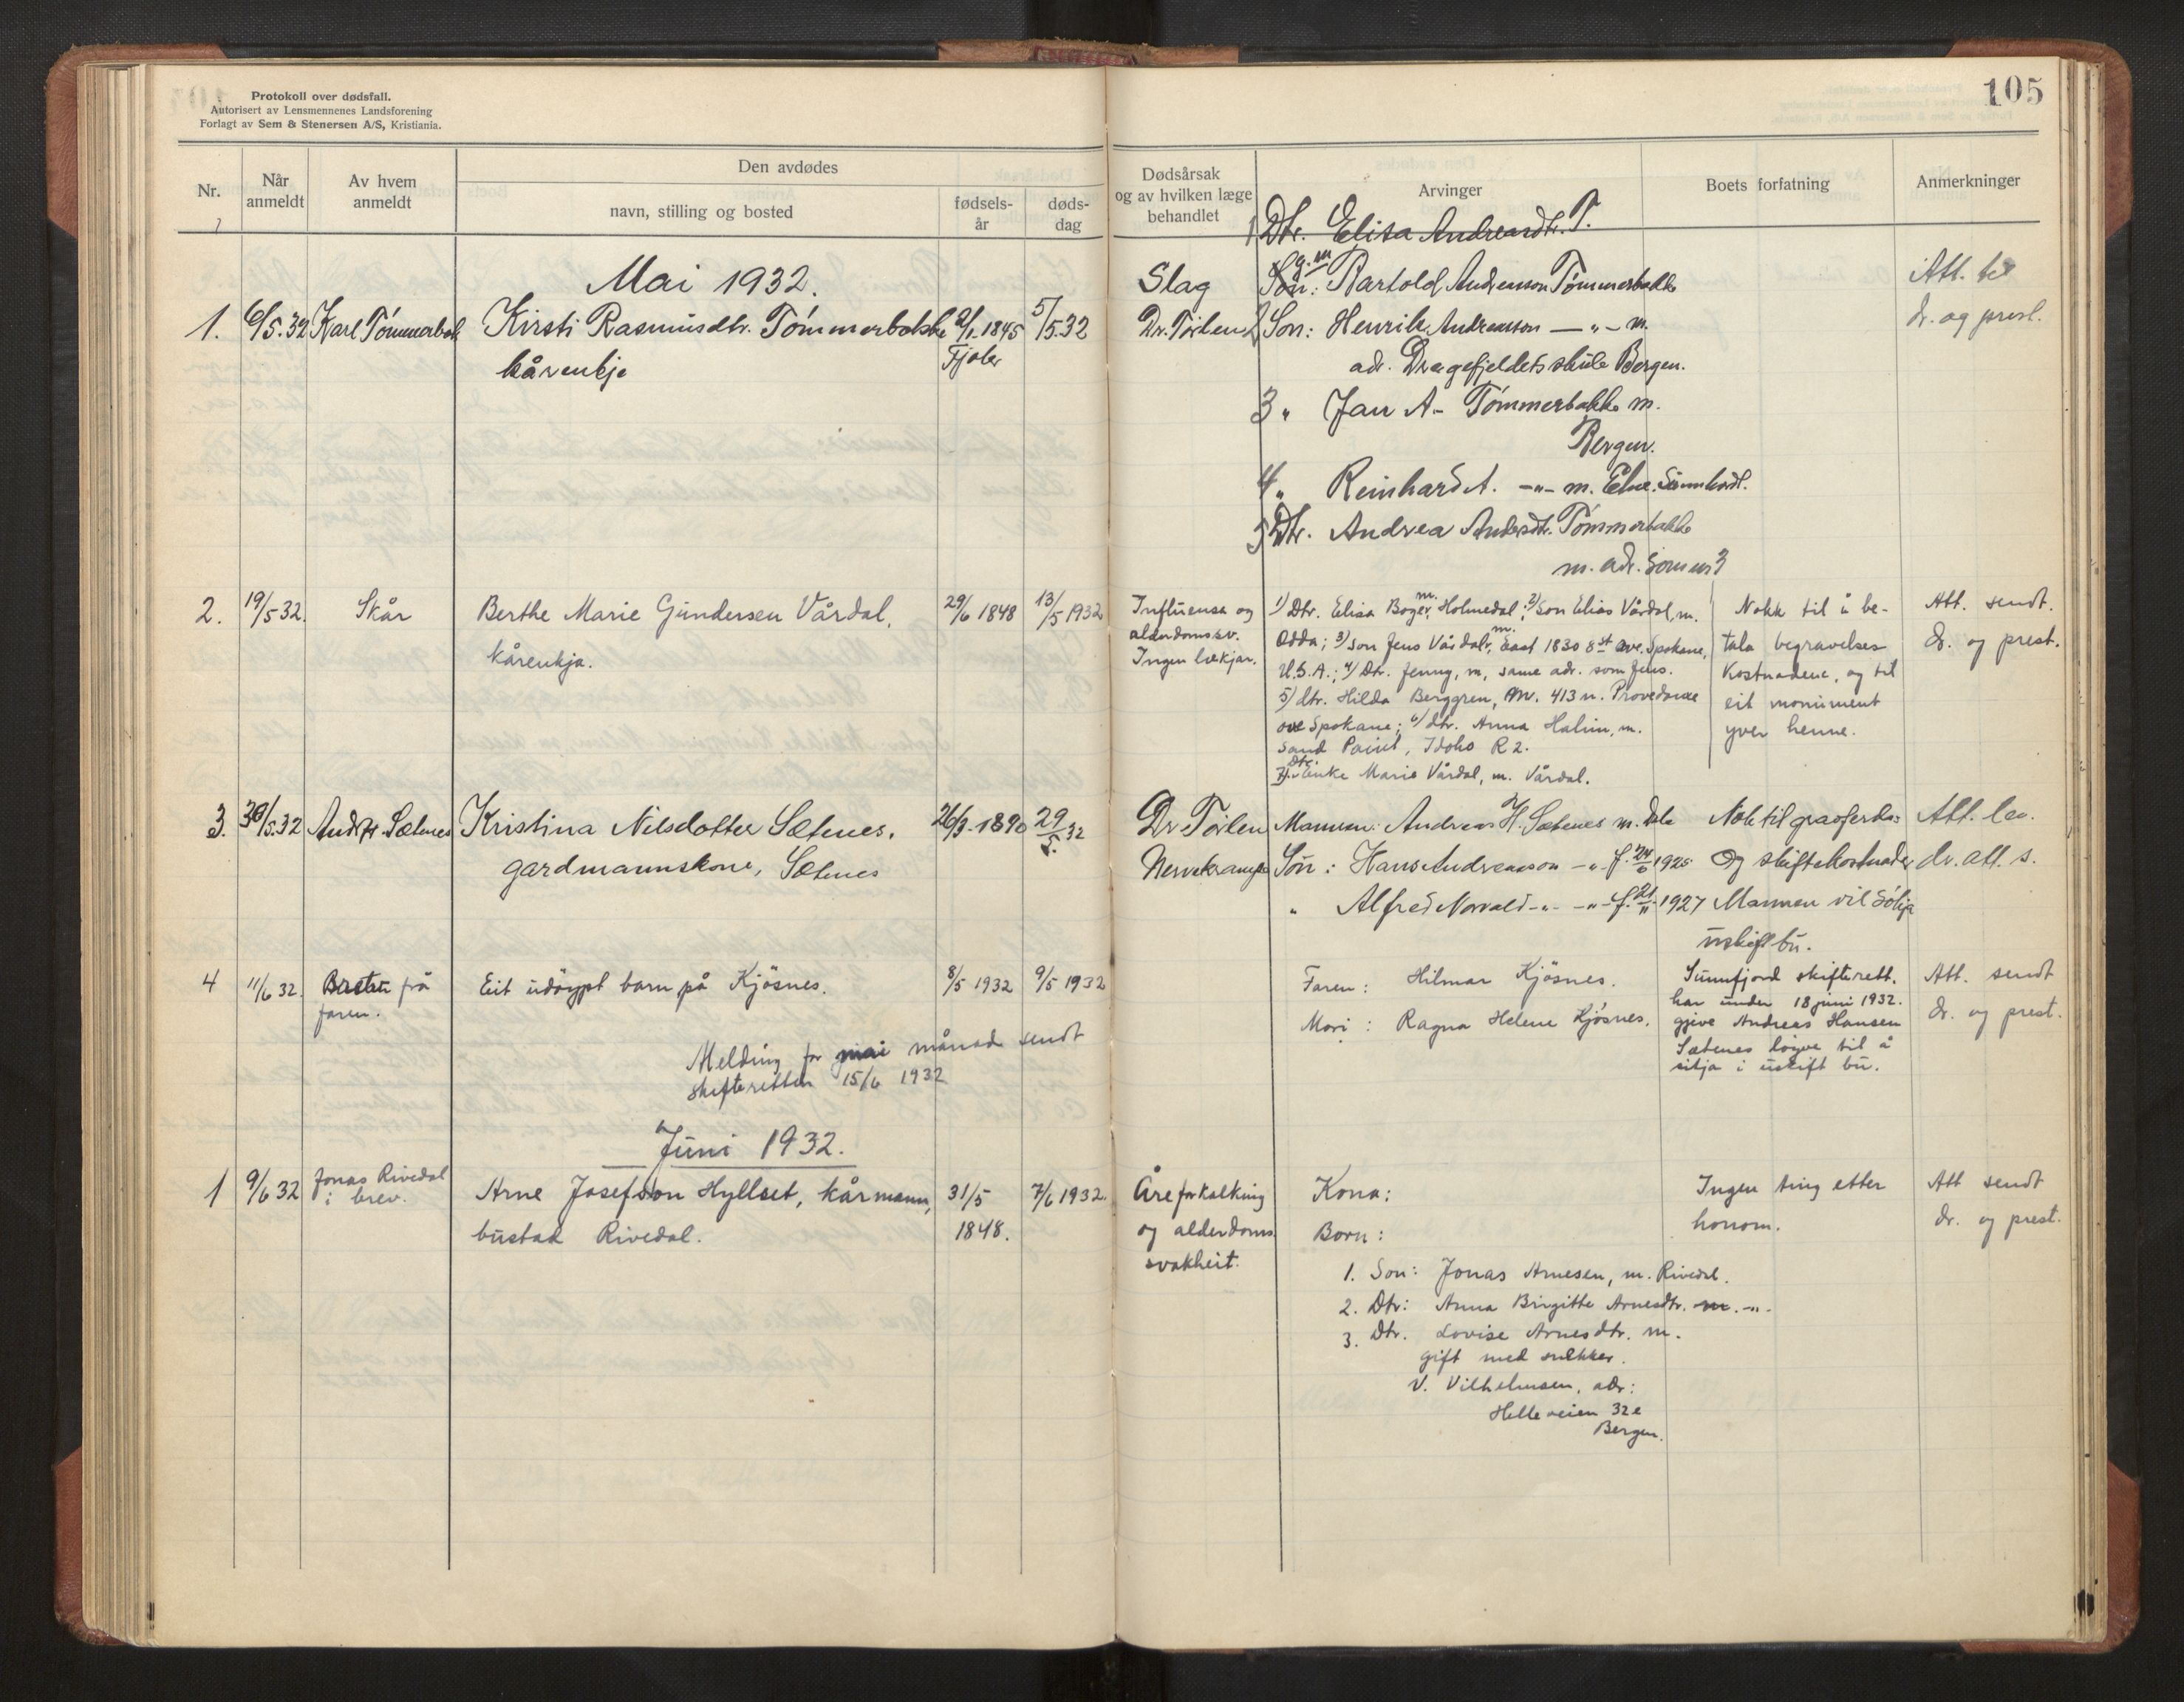 Protokoll over dødsfall.
Autorisert av Lensmennenes Landsforening
Forlagt av Sem & Stenersen A/S, Kristiania.
105
Nr.
Når anmeldt
Av hvem anmeldt
Den avdødes
navn, stilling og bosted
fødsels-år
døds-dag
Dødsårsak og av hvilken læge behandlet
Arvinger
Boets forfatning
Anmerkninger
Mai 1932.
1. 6/5.32 Karl Tømmerbak Kirsti Rasmusdtr. Tømmerbakke 2/1.1845 5/5.32
Fjaler
kårenkje
Slag
Dr. Tørlen
1 Dtr. Elisa Andreasdtr. T.
g. m
Son: Bartold Andreasson Tømmerbakke
2 Son: Henrik Andreasson —"— m.
adr. Dragefjeldets skule Bergen.
3 " Jan A- Tømmerbakke m.
Bergen.
4 " Reinhard A. -"- m. Elve. Sunnhordl.
5 Dtr. Andrea Andersdtr. Tømmerbakke
m. adr. Som nr 3
Att. til
dr. og prest.
2. 19/5 32. Skår Berthe Marie Gundersen Vårdal, 29/6 1848 13/5 1932
kårenkja.
Influensa og
alderdomssv.
Ingen lækjar.
1) Dtr. Elisa Boger, m. Holmedal; 2) Son Elias Vårdal, m.
Odda; 3) Son Jens Vårdal, m. East 1830 8st ave. Spokane,
U.S.A.; 4) Dtr. Jenny, m, same adr. som Jens.
5) dtr. Hilda Berggren, m. 413 n.
ave Spokane; 6) dtr. Anna Halim, m.
Sand Point, Idoho R 2.
7) Dtr. Enke Marie Vårdal, m. Vårdal.
Nokk til å be-
tala begravelses
kostnadene, og til
eit monument
yver henne.
Att. sendt.
dr. og prest.
3. 30/5.32 Andr. H. Sætenes Kristina Nilsdotter Sætenes. 26/3-1890 29/5. 32
gardmannskone, Sætenes
Dr Tørlen
Nervekrampe
Mannen: Andreas H. Sætenes m. Dale
Son: Hans Andreasson -"- f. 24/6 1925
" Alfred Norvald -"- -"- f. 21/11 1927
Nok til gravferds-
og skiftekostnader
Mannen vil sitja
uskift bu.
Att. lev.
dr. att. s.
4 11/6 32. frå faren. Eit udøypt barn på Kjøsnes. 8/5 1932 9/5 1932
Faren: Hilmar Kjøsnes.
Mori: Ragna Helene Kjøsnes.
Sunnfjord skifterett.
har under 18 juni 1932.
gjeve Andreas Hansen
Sætenes løyve til å
sitja i uskift bu.
Att. sendt
dr. og prest.
Melding for mai månad sendt
skifteretten 15/6 1932
Juni 1932.
1 9/6 32 Jonas Rivedal i brev. Arne Josefson Hyllset, kårmann, 31/5 1848. 7/6 1932.
bustad Rivedal.
Åreforkalking
og alderdoms
svakheit.
Kona:
Born:
1. Son: Jonas Arnesen, m. Rivedal.
2. Dtr: Anna Birgitte Arnesdtr. m. -"-
3. Dtr. Lovise Arnesdtr. m.
gift med snekker.
V. Vilhelmsen, adr:
Helleveien 32e
Bergen.
Ingen ting etter
honom.
Att sendt
dr. og prest.